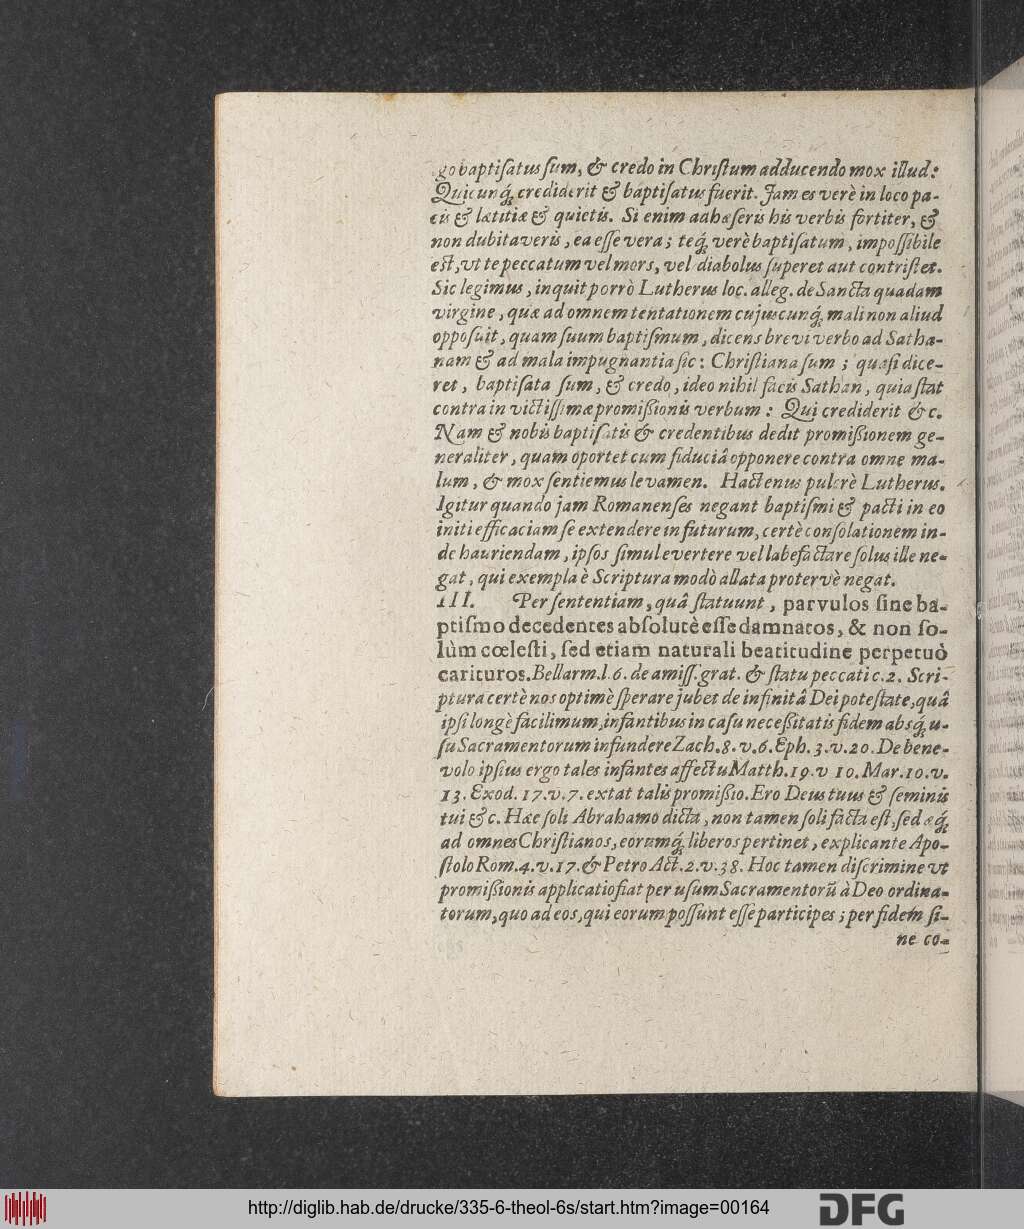 go baptiſatus ſum, & credo in Chriſtum adducendo mox illud:
Quicunq́, crediderit & baptiſatus fuerit. Jam es verè in loco pa-
cis & lætitiæ & quietis. Si enim adhæſeris his verbis fortiter, &
non dubitaveris, ea eſſe vera; teq́, verè baptiſatum, impoſſibile
eſt, vt te peccatum vel mors, vel diabolus ſuperet aut contriſtet.
Sic legimus, inquit porrò Lutherus loc. alleg. de Sancta quadam
virgine, quæ ad omnem tentationem cujuscunq́, mali non aliud
oppoſuit, quam ſuum baptiſmum, dicens brevi verbo ad Satha-
nam & ad mala impugnantia ſic: Chriſtiana ſum; quaſi dice-
ret, baptiſata ſum, & credo, ideo nihil facis Sathan, quia ſtat
contra invictiſſimæ promißionis verbum: Qui crediderit &c.
Nam & nobis baptiſatis & credentibus dedit promißionem ge-
neraliter, quam oportet cum fiduciâ opponere contra omne ma-
lum, & mox ſentiemus levamen. Hactenus pulcrè Lutherus.
Igitur quando jam Romanenſes negant baptiſmi & pacti in eo
initi efficaciam ſe extendere in futurum, certè conſolationem in-
de hauriendam, ipſos ſimul evertere vel labefactare ſolus ille ne-
gat, qui exempla è Scriptura modò allata protervè negat.
III. Per ſententiam, quâ ſtatuunt, parvulos ſine ba-
ptiſmo decedentes abſolutè eſſe damnatos, & non ſo-
lùm cœleſti, ſed etiam naturali beatitudine perpetuò
carituros. Bellarm. l. 6. de amiſſ. grat. & ſtatu peccati c. 2. Scri-
ptura certè nos optimè ſperare jubet de infinitâ Dei poteſtate, quâ
ipſi longè facilimum, infantibus in caſu neceßitatis fidem absq́, u-
ſu Sacramentorum infundere Zach. 8. v. 6. Eph. 3. v. 20. De bene-
volo ipſius ergo tales infantes affectu Matth. 19. v 10. Mar. 10. v.
13. Exod. 17. v. 7. extat talis promißio. Ero Deus tuus & ſeminis
tui &c. Hæc ſoli Abrahamo dicta, non tamen ſoli facta eſt, ſed æq́,
ad omnes Chriſtianos, eorumq́, liberos pertinet, explicante Apo-
ſtolo Rom. 4. v. 17. & Petro Act. 2. v. 38. Hoc tamen diſcrimine vt
promißionis applicatio fiat per uſum Sacramentorū à Deo ordina-
torum, quo ad eos, qui eorum poſſunt eſſe participes; per fidem ſi-
ne co-
http://diglib.hab.de/drucke/335-6-theol-6s/start.htm?image=00164
DFG